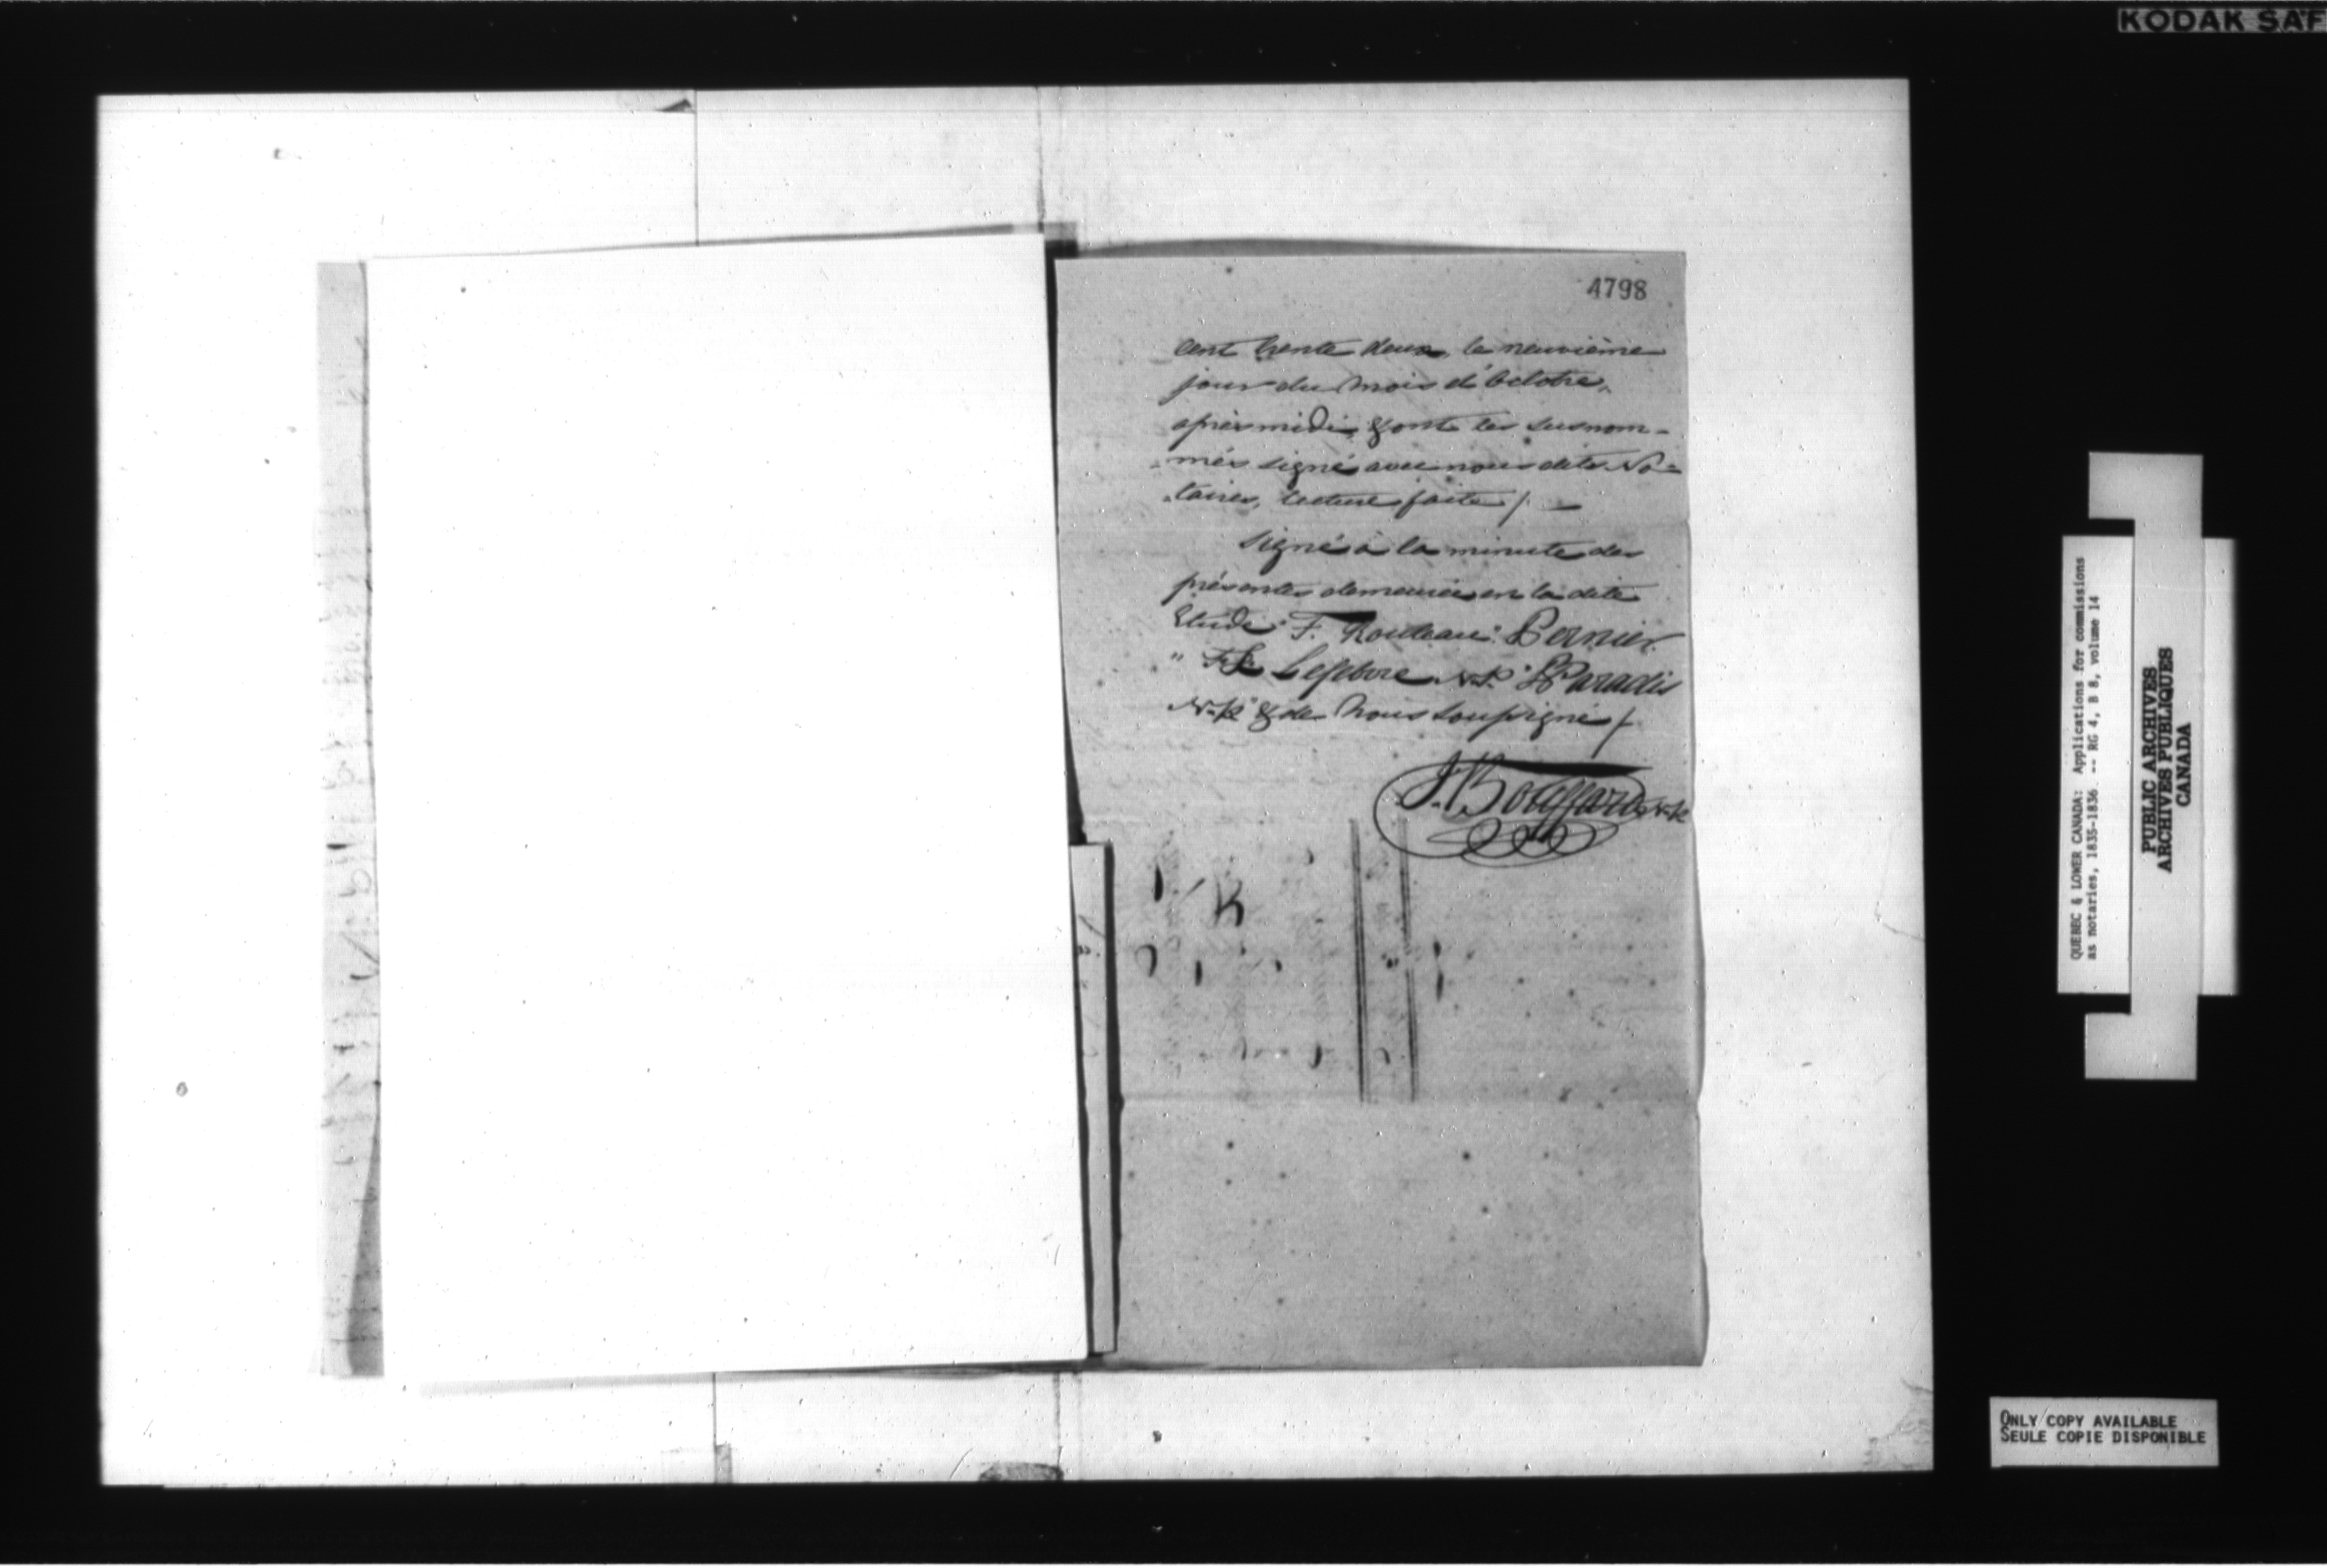 KODAK SAF
4798
cent trente deux, le neuvième
jour du mois d'Octobre,
après midi, & ont les susnom-
-més signé avec nous dits No=
-taires, lecture faite /. —
Signé à la minute des
présentes demeurée en la dite
Etude: F. Rouleau: Bernier
" Lefebvre N.P. " Paradis
N.P." & de Nous soussigné /.
J. Bouffard N.P.
QUEBEC & LOWER CANADA: Applications for commissions
as notaries, 1835-1836 -- RG 4, B 8, volume 14
PUBLIC ARCHIVES
ARCHIVES PUBLIQUES
CANADA
ONLY COPY AVAILABLE
SEULE COPIE DISPONIBLE